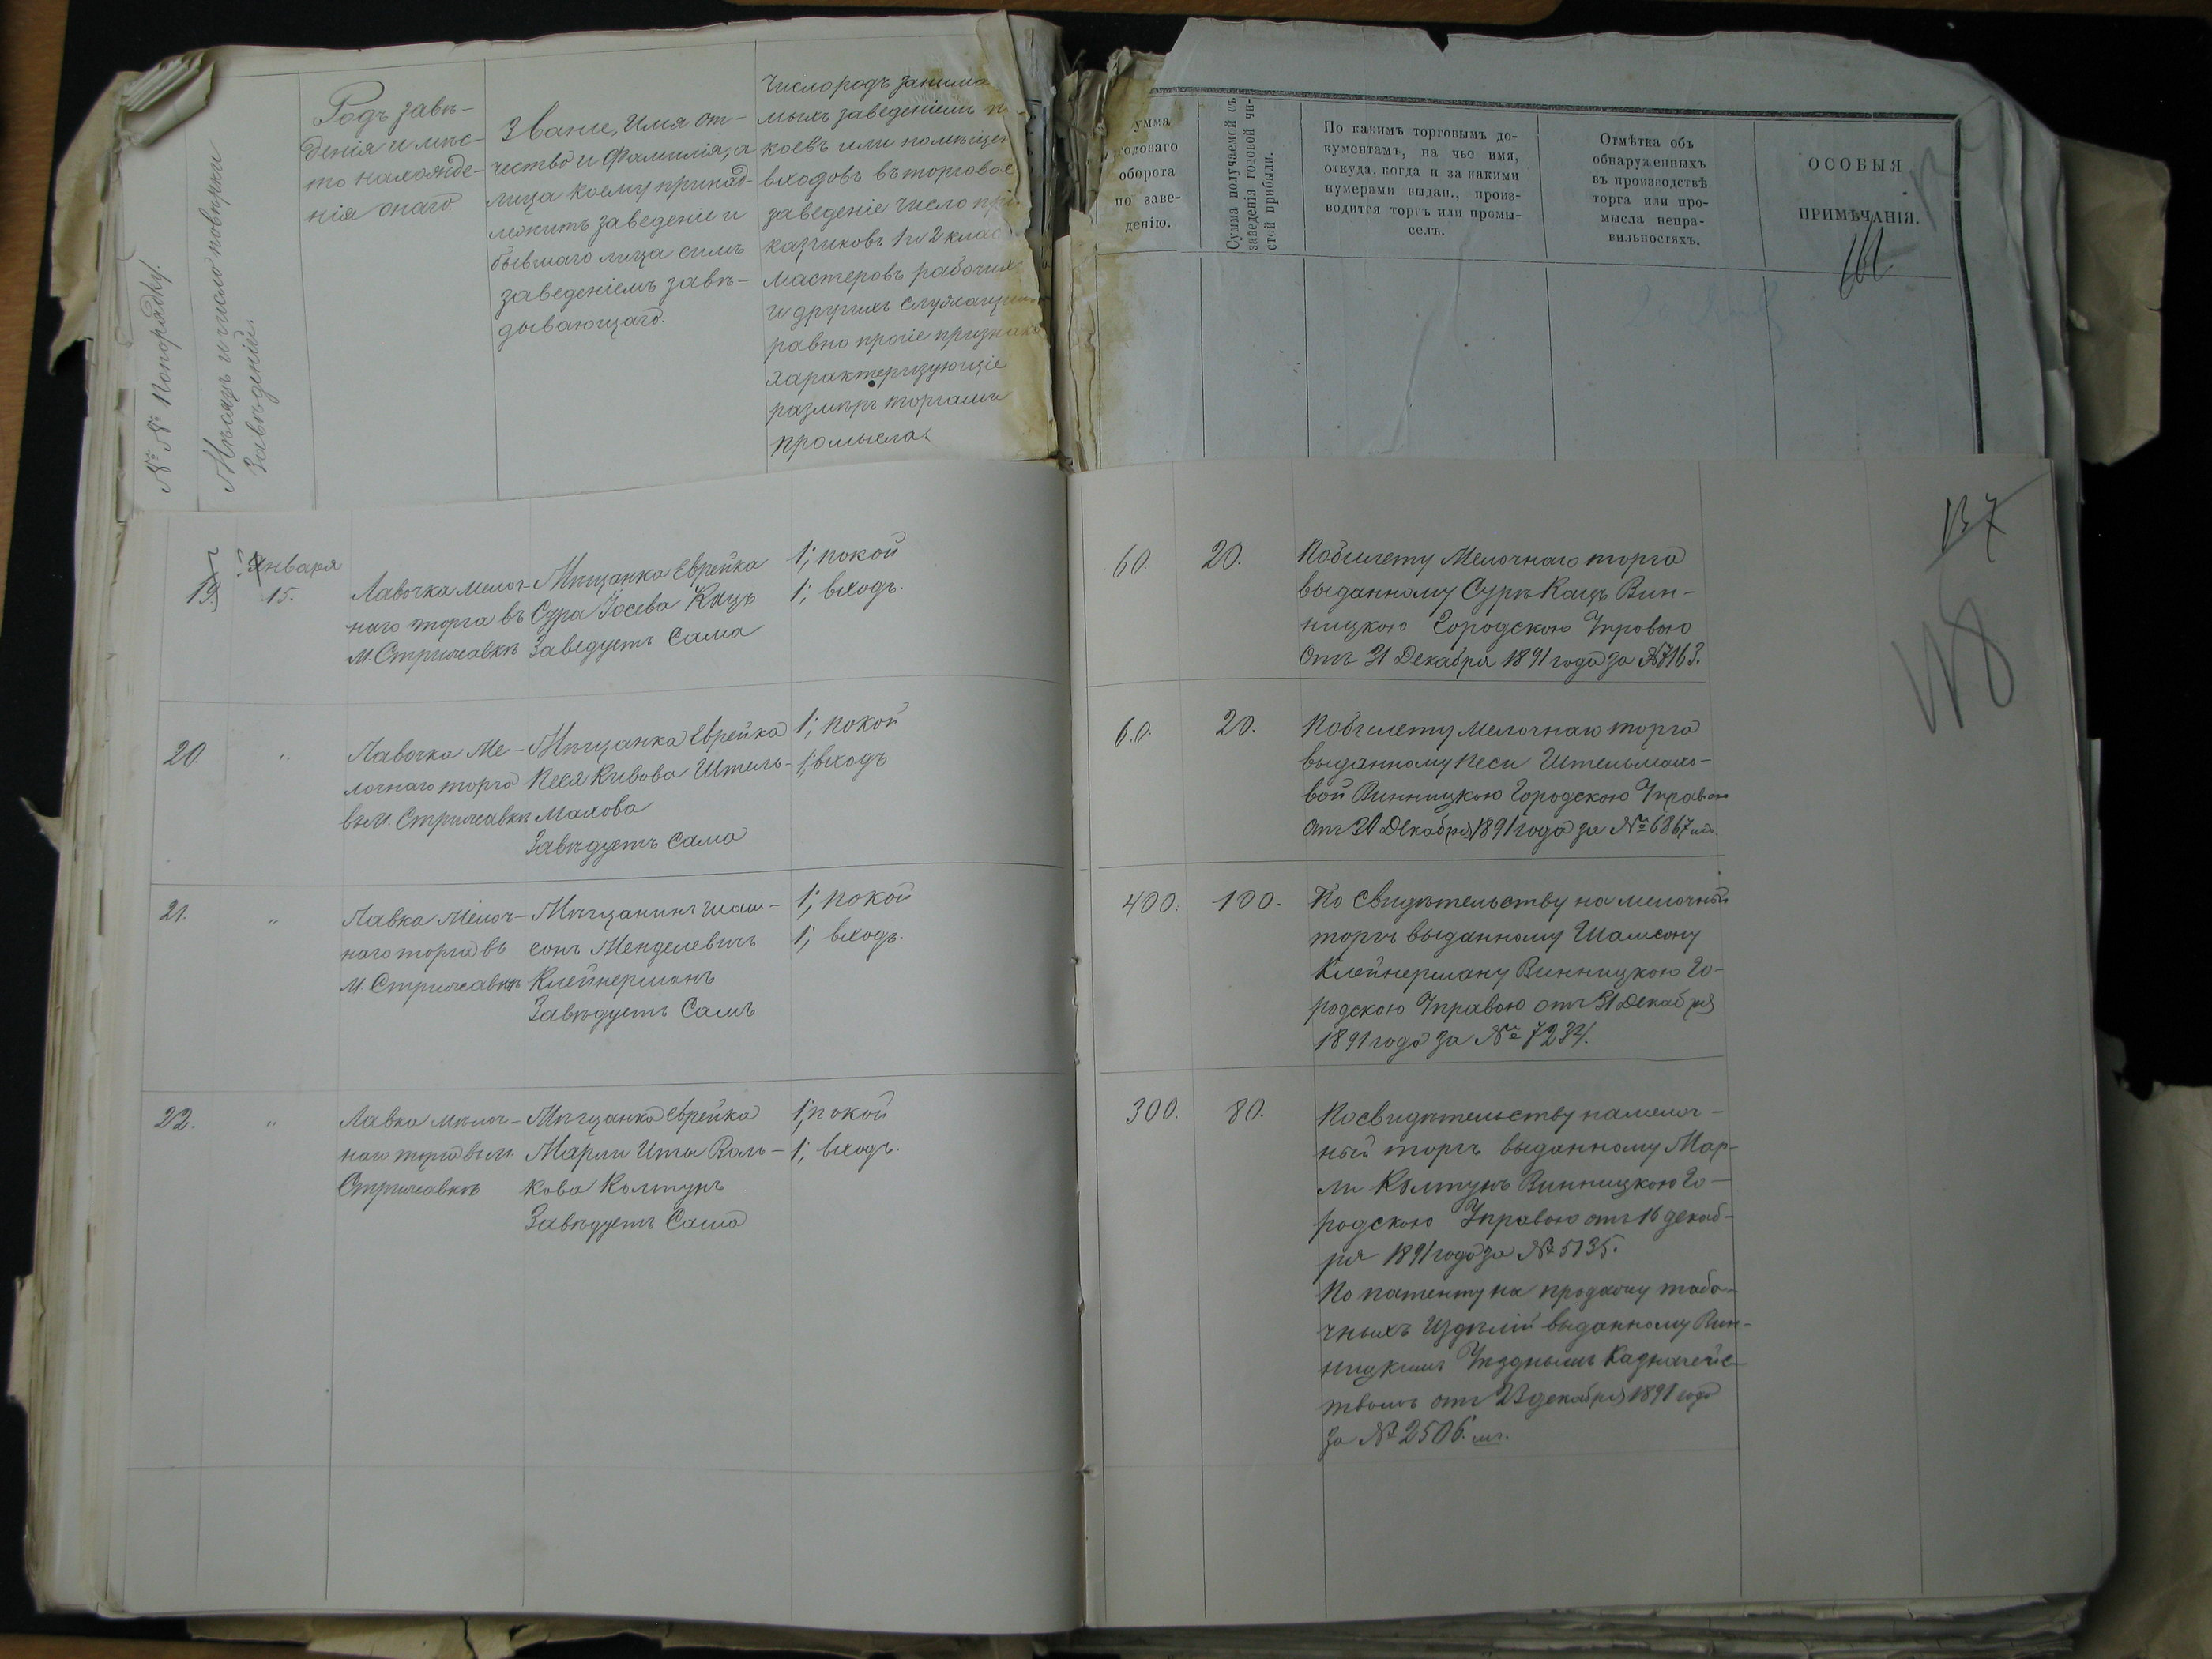 № № попорядку.
Мѣсяцъ и число повѣрки
Заведеній.
Родъ заве-
денія и мѣс-
то нахожде-
нія онаго.
Званіе, Имя от-
чество и Фамилія, а
лица коему принад-
лежитъ заведеніе и
бывшаго лица симъ
заведеніемъ завѣ-
дывающаго.
Число родъ занима
мыхъ заведеніемъ п
коевъ или помѣщен
входовъ въ торговое
заведеніе число при
казчиковъ 1 и 2 клас
мастеровъ рабочихъ
и другихъ служащихъ
равно прочіе признаки
характеризующіе
размѣръ торга или
промысла.
умма
годоваго
оборота
по заве-
денію.
Сумма получаемой съ
заведенія годовой чи-
стой прибыли.
По какимъ торговымъ до-
кументамъ, на чье имя,
откуда, когда и за какими
нумерами выдан., произ-
водится торгъ или промы-
селъ.
Отмѣтка объ
обнаруженныхъ
въ производствѣ
торга или про-
мысла непра-
вильностяхъ.
ОСОБЫЯ
ПРИМѢЧАНІЯ.
19.
Января
15.
Лавочка мелоч-
наго торга въ
М. Стрижавкѣ
Мѣщанка Еврейка
Сура Іосева Кацъ
Заведуетъ Сама
1; покой
1; входъ.
60.
20.
По билету Мелочнаго торга
выданному Сурѣ Кацъ Вин-
ницкою Городскою Управою
Отъ 31 Декабря 1891 года за №7163.
137
118
20.
"
Лавочка Ме-
лочнаго торга
въ М. Стрижавкѣ
Мѣщанка Еврейка
Песя Кивова Штель-
махова
Завѣдуетъ Сама
1; покой
1; входъ
60.
20.
По билету Мелочнаго торга
выданному Песи Штельмахо-
вой Винницкою Городскою Управою
Отъ 30 Декабря 1891 года за № 6867
21.
"
Лавка Мелоч-
наго торга въ
М. Стрижавкѣ
Мѣщанинъ Шам-
сонъ Менделевичъ
Клейнерманъ
Завѣдуетъ Самъ
1; покой
1; входъ.
400.
100.
По Свидѣтельству на мелочный
торгъ выданному Шамсону
Клейнерману Винницкою Го-
родскою Управою отъ 31 Декабря
1891 года за № 7234.
22.
"
Лавка мелоч-
наго торга въ м.
Стрижавкѣ
Мѣщанка Еврейка
Марли Ита Воль-
кова Колтунъ
Завѣдуетъ Сама
1; покой
1; входъ.
300.
80.
По свидѣтельству на мелоч-
ный торгъ выданному Мар-
ли Колтунъ Винницкою Го-
родскою Управою отъ 16 декаб-
ря 1891 года за № 5135.
По патенту на продажу таба-
чныхъ Издѣлій выданному Вин-
ницкимъ Уѣзднымъ Казначейс-
твомъ отъ 23 декабря 1891 года
за № 2506.